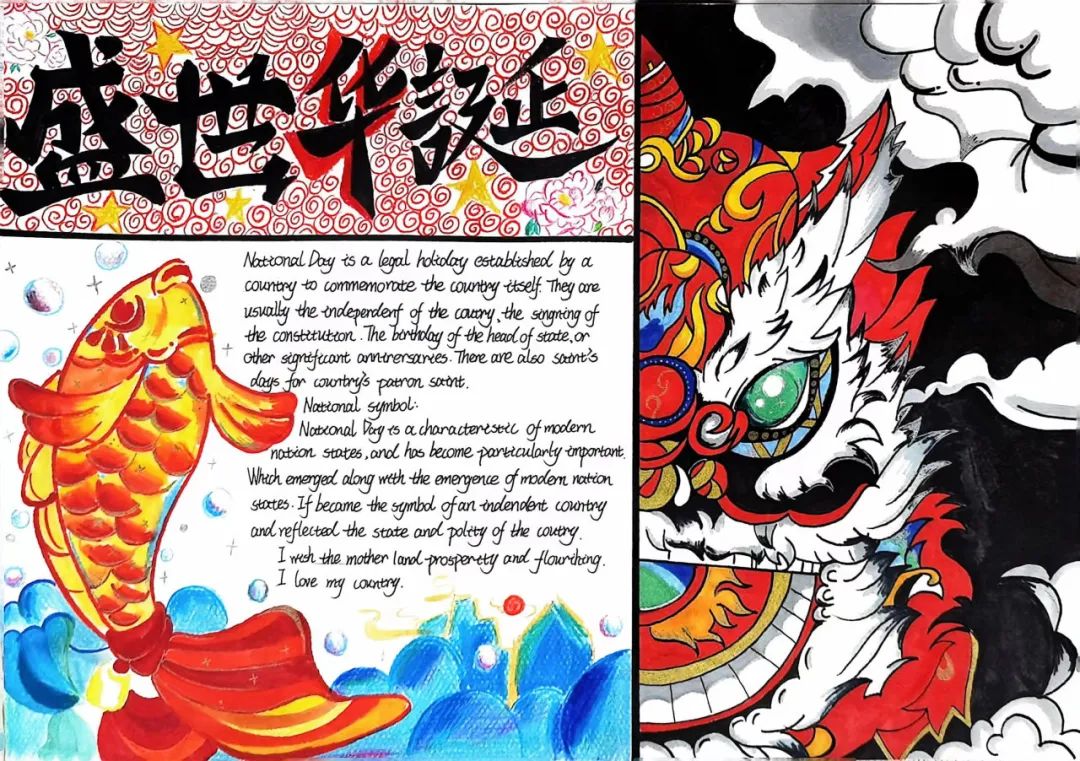 盛世华誕
National Day is a legal holiday established by a
country to commemorate the country itself. They are
usually the independenf of the coutry, the singning of
the constitution. The birthday of the head of state, or
other significant annirersaries. There are also saint's
days for country's patron saint.
National symbol:
National Day is a characteristic of modern
nation states, and has become particularly important.
Which emerged along with the emergence of modern nation
states. If became the symbol of an indendent country
and reflected the state and polity of the coutry.
I wish the mother land prosperity and flourthing.
I love my country.